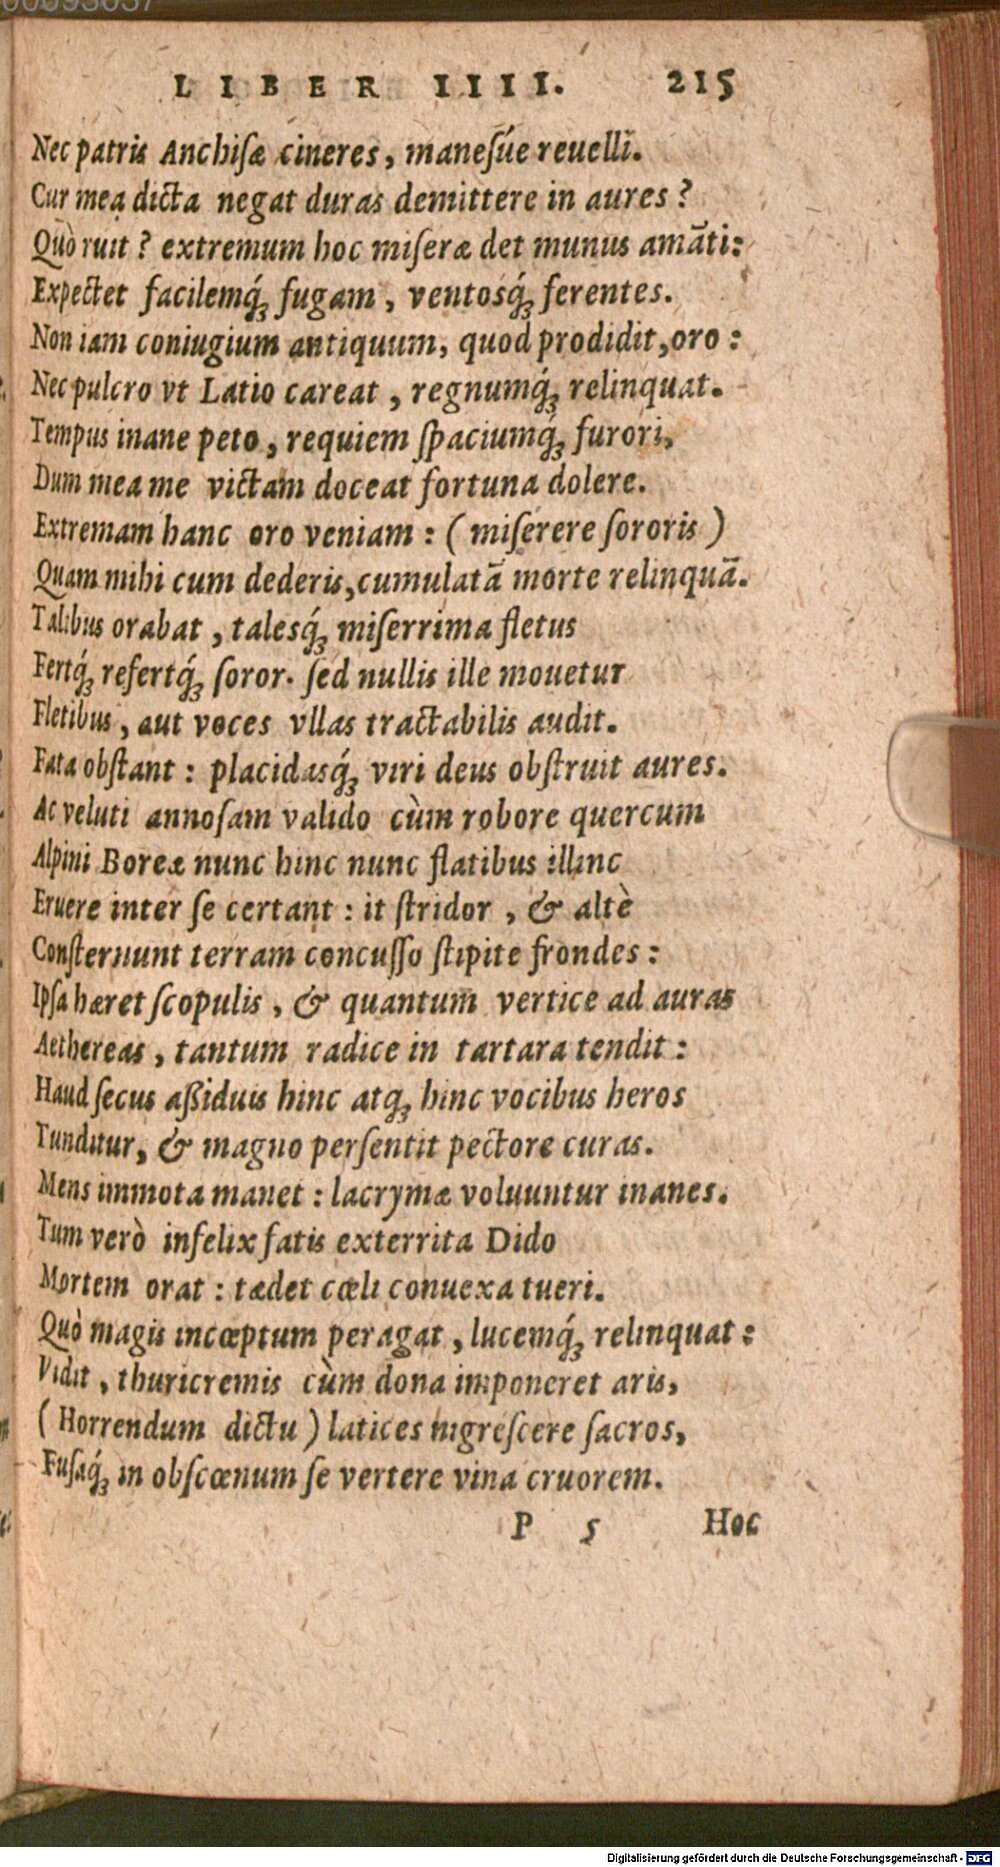 LIBER IIII. 215
Nec patris Anchisæ cineres, manesúe reuelli.
Cur mea dicta negat duras demittere in aures?
Quò ruit? extremum hoc miseræ det munus amāti:
Expectet facilemq́ꝫ fugam, ventosq́ꝫ ferentes.
Non iam coniugium antiquum, quod prodidit, oro:
Nec pulcro vt Latio careat, regnumq́ꝫ relinquat.
Tempus inane peto, requiem spaciumq́ꝫ furori,
Dum mea me victam doceat fortuna dolere.
Extremam hanc oro veniam: (miserere sororis)
Quam mihi cum dederis, cumulatā morte relinquā.
Talibus orabat, talesq́ꝫ miserrima fletus
Fertq́ꝫ refertq́ꝫ soror. sed nullis ille mouetur
Fletibus, aut voces vllas tractabilis audit.
Fata obstant: placidasq́ꝫ viri deus obstruit aures.
Ac veluti annosam valido cùm robore quercum
Alpini Boreæ nunc hinc nunc flatibus illinc
Eruere inter se certant: it stridor, & altè
Consternunt terram concusso stipite frondes:
Ipsa hæret scopulis, & quantum vertice ad auras
Aethereas, tantum radice in tartara tendit:
Haud secus aßiduis hinc atqꝫ hinc vocibus heros
Tunditur, & magno persentit pectore curas.
Mens immota manet: lacrymæ voluuntur inanes.
Tum verò infelix fatis exterrita Dido
Mortem orat: tædet cœli conuexa tueri.
Quò magis incœptum peragat, lucemq́ꝫ relinquat:
Vidit, thuricremis cùm dona imponeret aris,
(Horrendum dictu) latices nigrescere sacros,
Fusaq́ꝫ in obscœnum se vertere vina cruorem.
P 5 Hoc
Digitalisierung gefördert durch die Deutsche Forschungsgemeinschaft - DFG